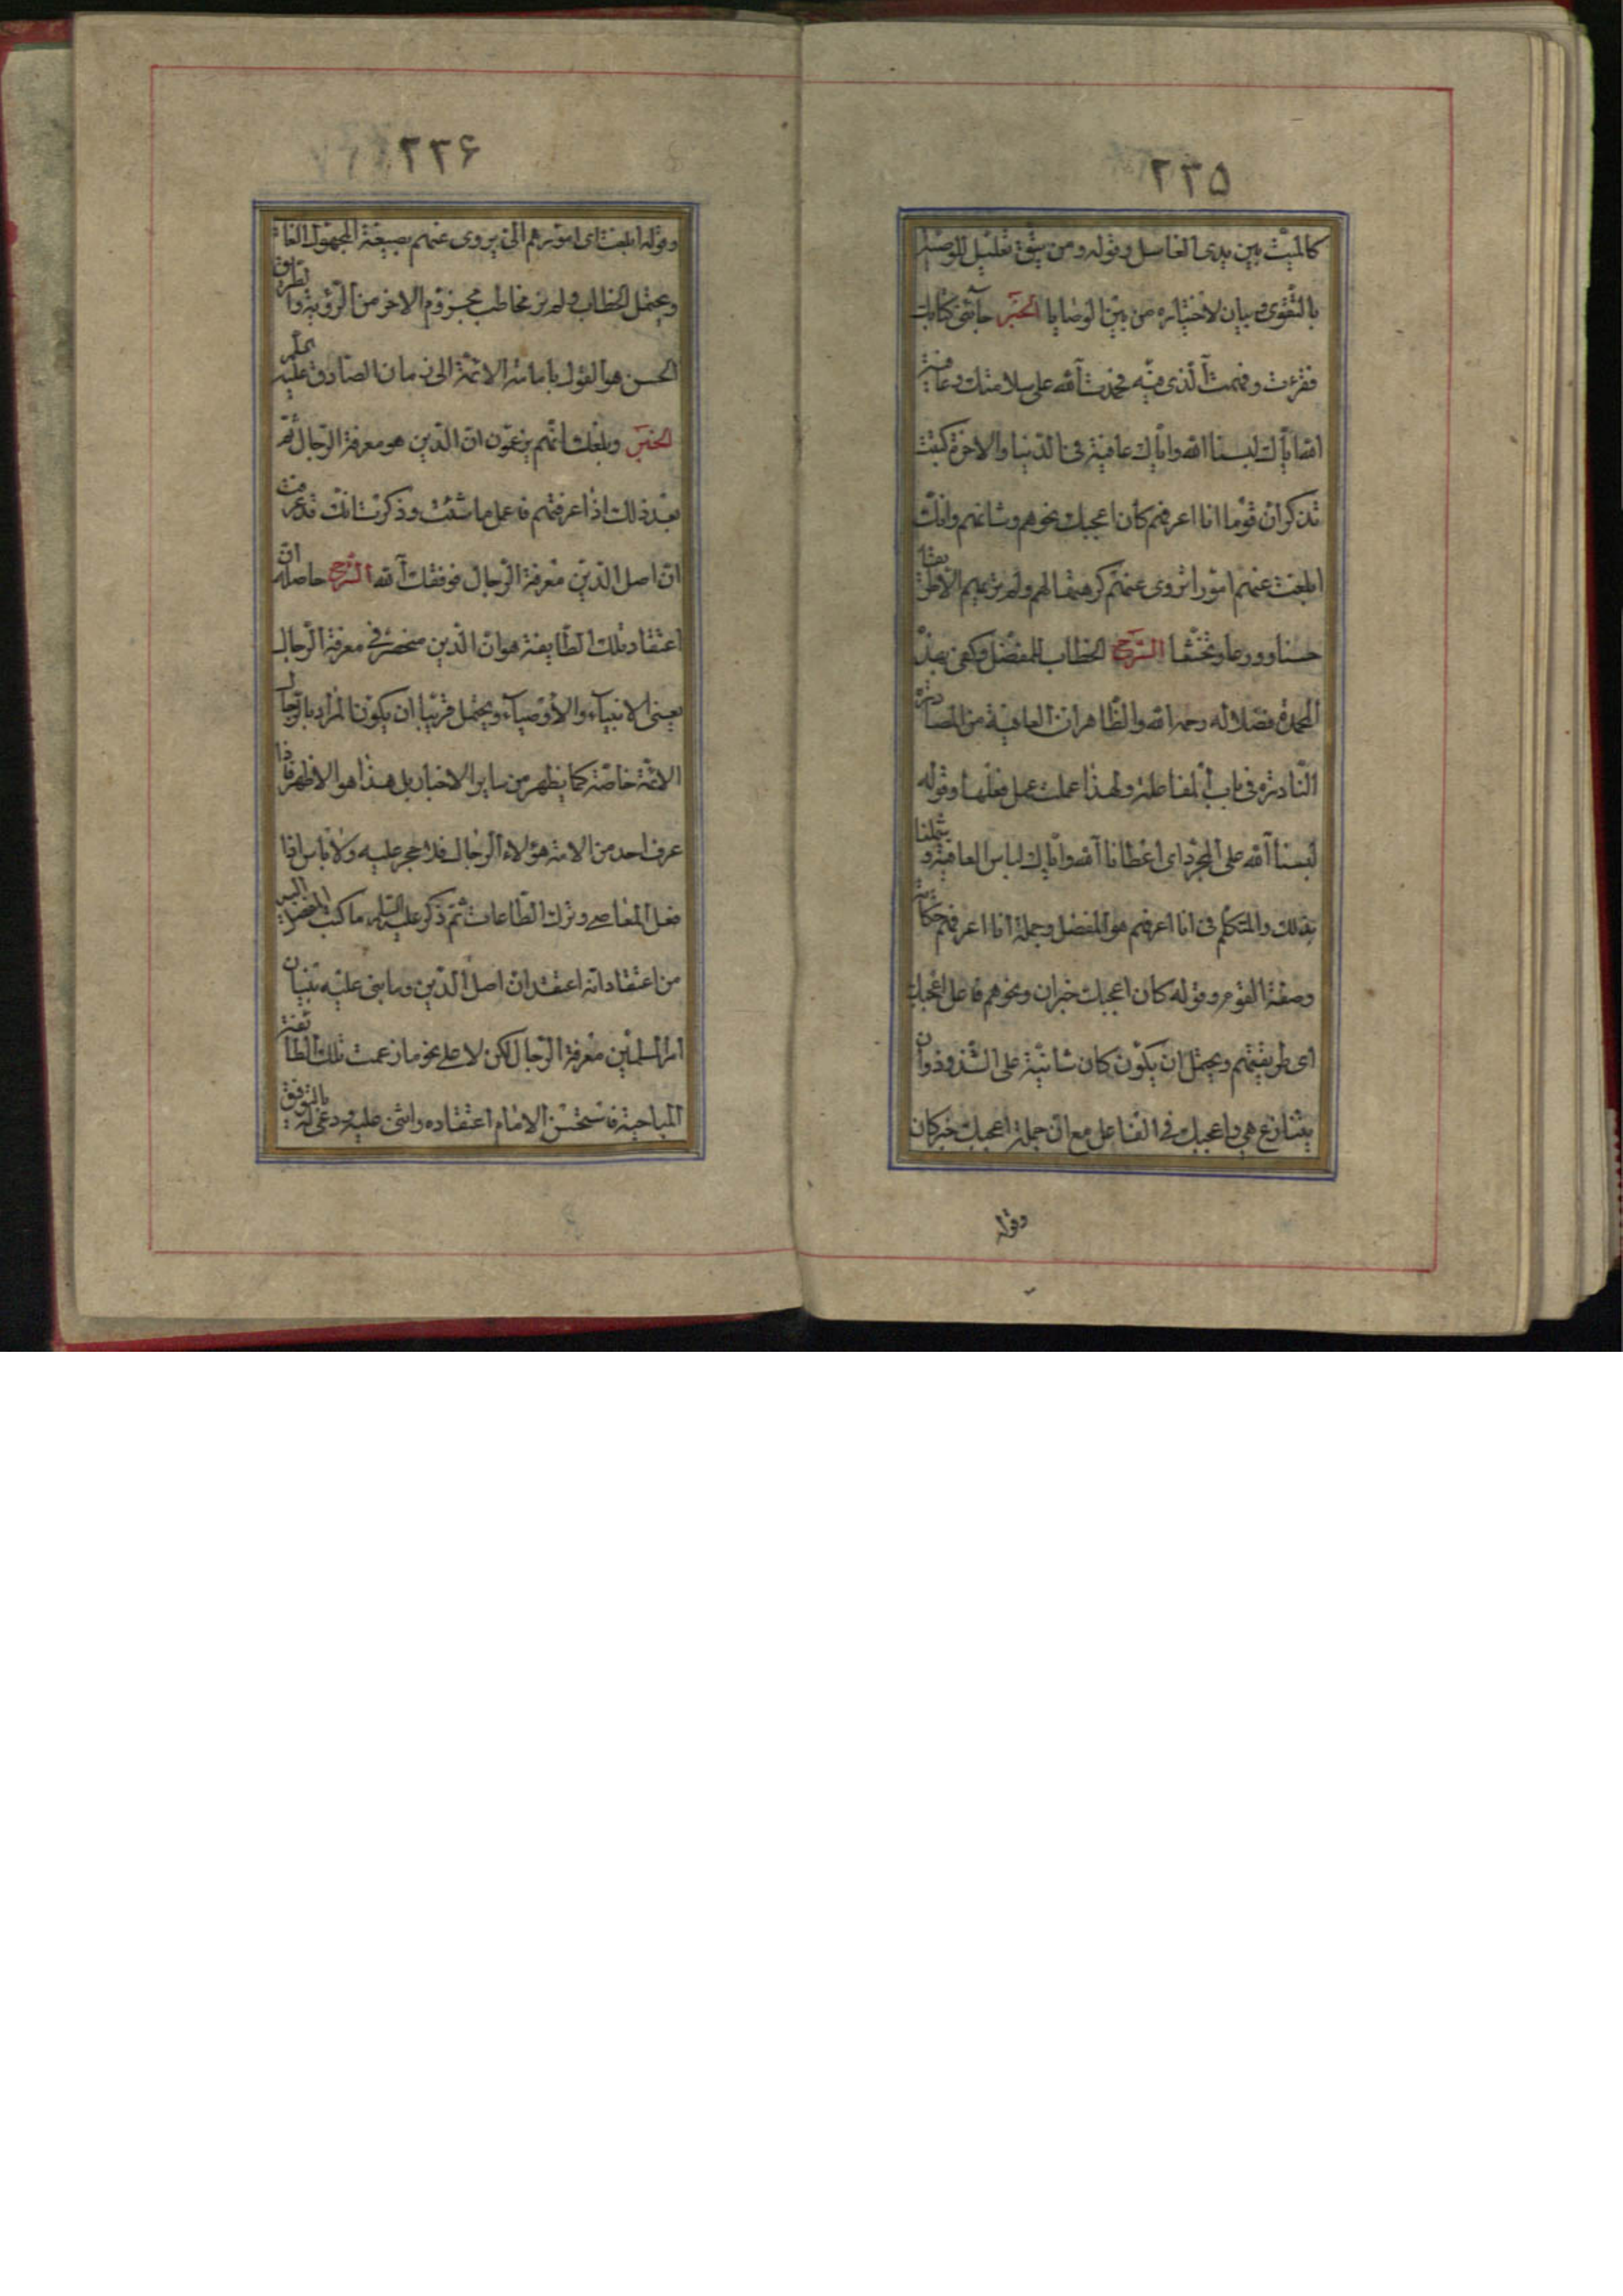 ٢٣٥
كالميّت بين يدى الغاسل وقوله ومن يتّق تعليل للوصيّة
بالتّقوى وبيان لاختياره من بين الوصايا الخبر جآئنى كتابك
فقرءت وفهمت الّذى فيه فحمدت اللّه على سلامتك وعافية
اللّه ايّاك البسنا اللّه وايّاك عافيته فى الدّنيا والاخرة كتبت
تذكر انّ قوما انا اعرفهم كان اعجبك نحوهم وشانهم وانّك
ابلغت عنهم امورا تروى عنهم كرهتها لهم ولم تر بهم الّا طريقا
حسنا وورعا وتخشّعا الشّرح الخطاب للمفضّل وكفى بهذه
المحمدة فضلا له رحمه اللّه والظّاهر انّ العافية من المصادر
النّادرة فى باب المفاعلة ولهذا عملت عمل فعلها وقوله
لبسنا اللّه على المجرّد اى اعطانا اللّه وايّاك لباس العافية و يشملنا
بذلك والمتكلّم فى انا اعرفهم هو المفضّل وجملة انا اعرفهم حكاية
وصفة القوم وقوله كان اعجبك خبر ان ونحوهم فاعل اعجبك
اى طريقتهم ويحتمل ان يكون كان شانيّة على الشّذوذ وان
يتنازع هى واعجبك فى الفاعل مع انّ جملة اعجبك خبر كان
وقوله
٢٣۶
وقوله ابلغت اى امورهم الّتى يروى عنهم بصيغة المجهول الغائب
ويحتمل الخطاب ولم تر مخاطب مجزوم الاخر من الرّؤية والطّريق
الحسن هو القول بامامة الائمّة الى زمان الصّادق عليه السلم
الخبر وبلغك انّهم يزعمون انّ الدّين هو معرفة الرّجال ثمّ
بعد ذلك اذا عرفتهم فاعمل ما شئت وذكرت انّك قد عرفت
انّ اصل الدّين معرفة الرّجال فوفّقك اللّه الشّرح حاصله انّ
اعتقاد تلك الطّايفة هو انّ الدّين منحصر فى معرفة الرّجال
يعنى الانبيآء والاوصيآء ويحتمل قريبا ان يكون المراد بالرّجال
الائمّة خاصّة كما يظهر من ساير الاخبار بل هذا هو الاظهر فاذا
عرف احد من الامة هؤلاء الرّجال فلا حجر عليه ولا باس اذا
فعل المعاصى وترك الطّاعات ثمّ ذكر عليه السّلم ما كتب المفضّل اليه
من اعتقاداته اعتقد انّ اصل الدّين وما بنى عليه بنيان
امر المسلمين معرفة الرّجال لكن لا على نحو ما زعمت تلك الطّائفة
المباحية فاستحسن الامام اعتقاده واثنى عليه ودعى له بالتوفيق